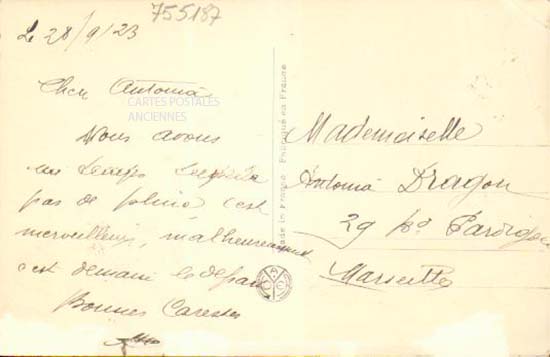 755187
Le 28/9/23
Cher Antonia
CARTES POSTALES
ANCIENNES
Nous avons
un temps
pas de pluie c'est
merveilleux, malheureusement
c'est demain le départ
Bonnes Caresses
Made in France - Fabriqué en France
Mademoiselle
Antonia Dragon
29 Bd
Marseille